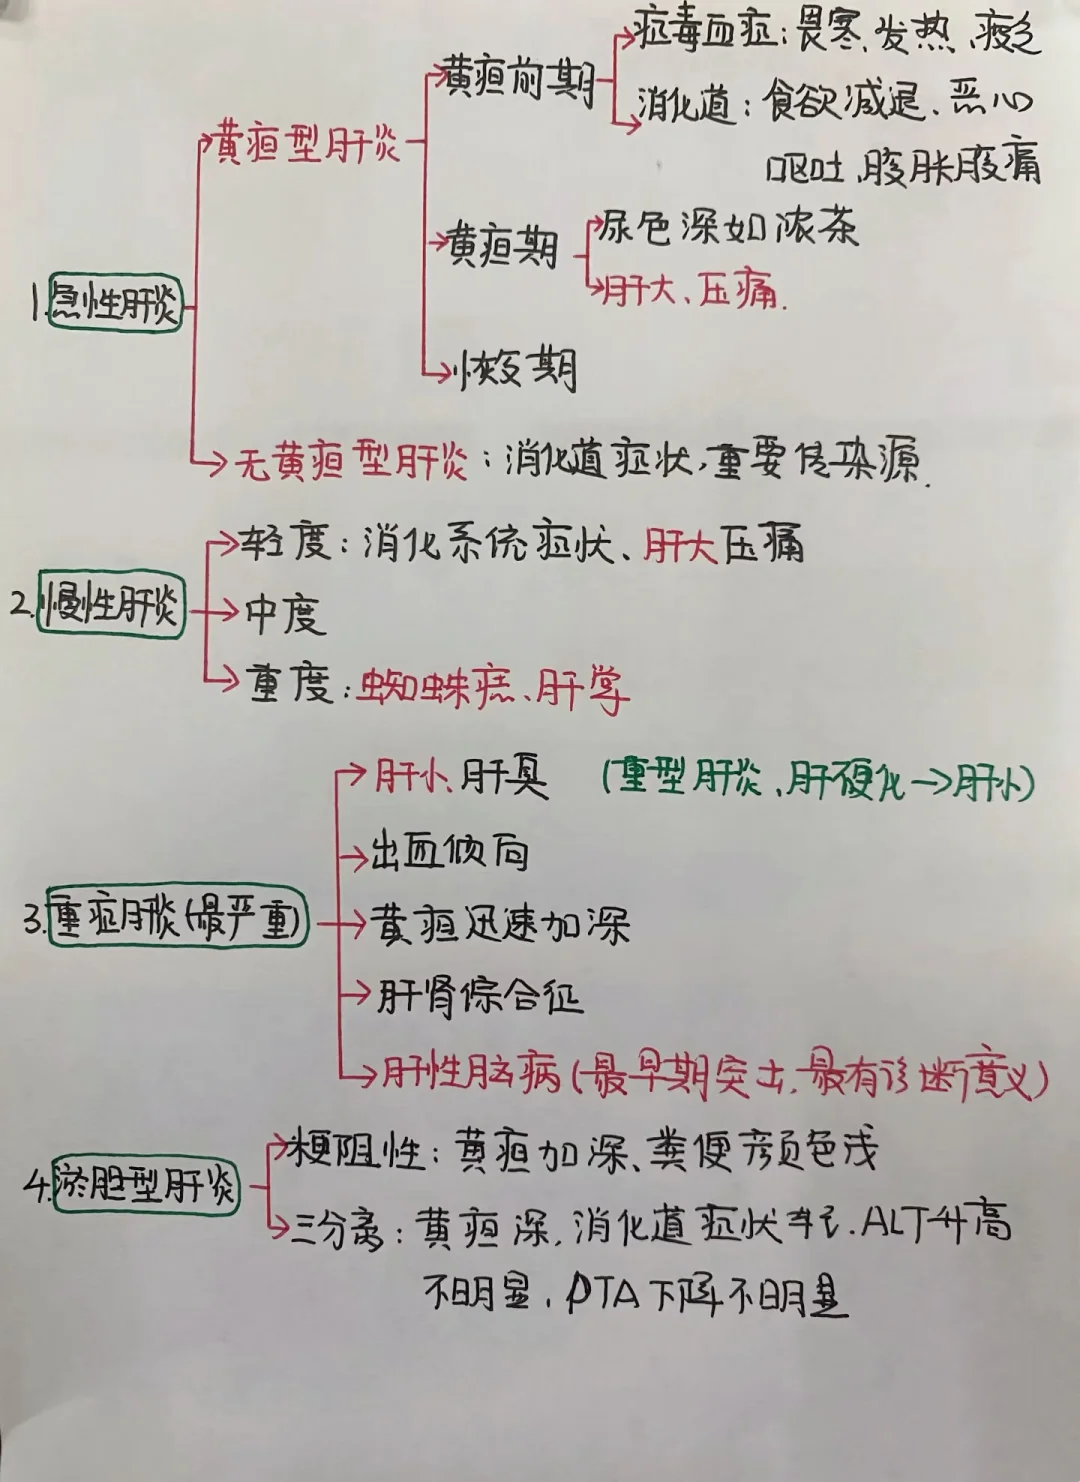 病毒血症：畏寒、发热、疲乏
黄疸前期
消化道：食欲减退、恶心
黄疸型肝炎
呕吐、腹胀腹痛
尿色深如浓茶
黄疸期
肝大、压痛.
1.急性肝炎
恢复期
无黄疸型肝炎：消化道症状,重要传染源.
轻度：消化系统症状、肝大压痛
2.慢性肝炎
中度
重度：蜘蛛痣、肝掌
肝小、肝臭 （重型肝炎、肝硬化→肝小）
出血倾向
3.重症肝炎(最严重)
黄疸迅速加深
肝肾综合征
肝性脑病(最早期突出,最有诊断意义)
梗阻性：黄疸加深、粪便颜色浅
4.淤胆型肝炎
三分离：黄疸深,消化道症状轻.ALT升高
不明显,PTA下降不明显